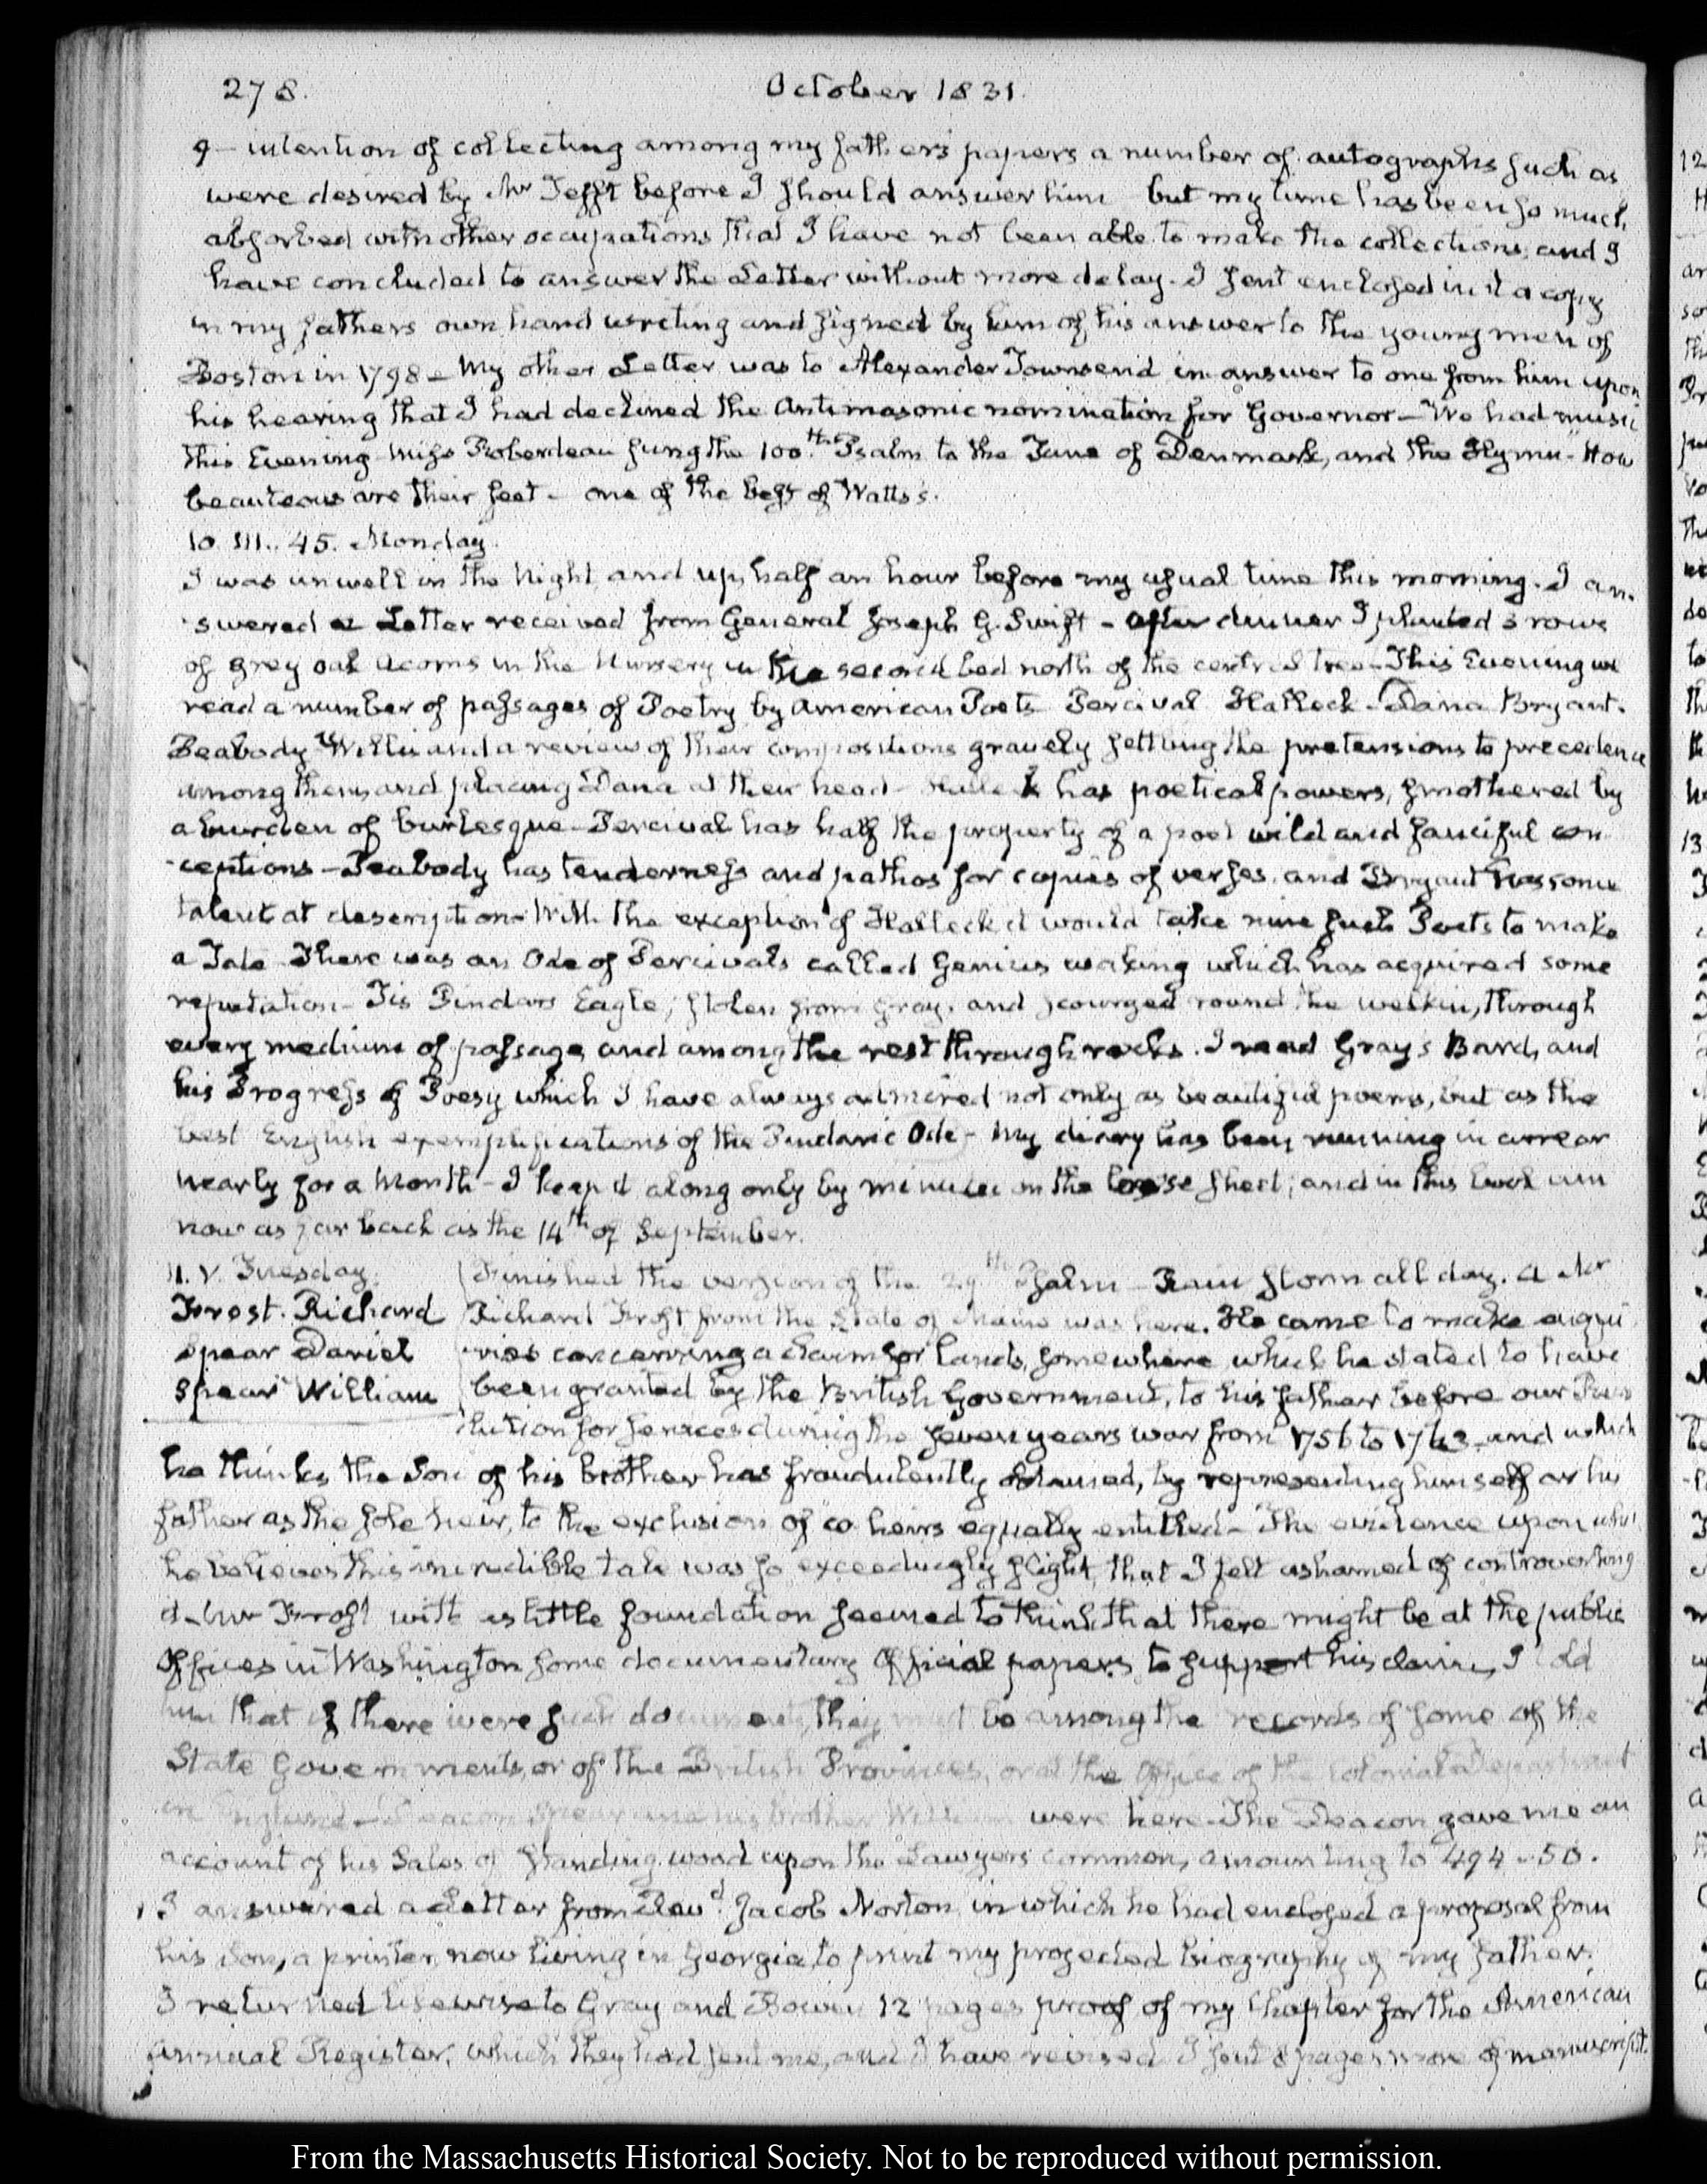 278.
October 1831.
9— intention of collecting among my fathers papers a number of autographs such as
were desired by Mr Tefft before I should answer him but my time has been so much
absorbed with other occupations that I have not been able to make the collections, and I
have concluded to answer the Letter without more delay. I sent enclosed in it a copy
in my fathers own hand writing and signed by him of his answer to the young men of
Boston in 1798— My other Letter was to Alexander Townsend in answer to one from him upon
his hearing that I had declined the Antimasonic nomination for Governor— We had music
this Evening Miss Roberdeau sung the 100.th Psalm to the Tune of Denmark, and the Hymn— How
beauteous are their feet— one of the best of Watts's.
10. III.. 45. Monday.
I was unwell in the Night, and up, half an hour before my usual time this morning. I an-
swered a Letter received from General Joseph G. Swift— After dinner I planted 3 rows
of grey oak acorns in the Nursery in the second bed north of the central tree— This Evening we
read a number of passages of Poetry by American Poets Percival Halleck— Dana Bryant.
Peabody Willis and a review of their compositions gravely settling the pretensions to precedence
among them, and placing Dana at their head— Halleck has poetical powers, smothered by
a burden of burlesque— Percival has half the property of a poet wild and fanciful con-
-ceptions— Peabody has tenderness and pathos for copies of verses, and Bryant has some
talent at description— With the exception of Halleck it would take nine such Poets to make
a Tate There was an Ode of Percivals called Genius waking which has acquired some
reputation— Tis Pindars Eagle, stolen from Gray, and scourged round the welkin, through
every medium of passage and among the rest through rocks. I read Gray's Bard, and
his Progress of Poesy which I have always admired not only as beautiful poems, but as the
best English exemplifications of the Pindaric Ode— My diary has been running in arrear
nearly for a Month— I keep it along only by minutes on the loose sheet; and in this book am
now as far back as the 14th of September.
11. V. Tuesday.
Frost. Richard
Spear Daniel
Spear William
Finished the version of the 29th Psalm— Rain storm all day. A Mr
Richard Frost from the State of Maine was here. He came to make enqui
ries concerning a claim for lands, somewhere which he stated to have
been granted by the British Government, to his father before our Revo
lution for services during the seven years war from 1756 to 1763 and which
he thinks the Son of his brother has fraudulently obtained, by representing himself or his
father as the sole heir, to the exclusion of co heirs equally entitled— The evidence upon which
he believes this incredible tale was so exceedingly slight, that I felt ashamed of controverting
it— Mr Frost with as little foundation seemed to think that there might be at the public
Offices in Washington some documentary Official papers to support his claim, I told
him that if there were such documents, they must be among the records of some of the
State Governments, or of the British Provinces, or at the Office of the Colonial Department
in England— Deacon Spear and his brother William were here— The Deacon gave me an
account of his Sales of standing wood upon the Lawyers common, amounting to 494–50.
I answered a Letter from Revd. Jacob Norton in which he had enclosed a proposal from
his Son, a printer, now living in Georgia, to print my projected biography of my father.
I returned likewise to Gray and Bowen 12 pages proof of my Chapter for the American
Annual Register, which they had sent me, and I have revised I sent 8 pages more of manuscript.
From the Massachusetts Historical Society. Not to be reproduced without permission.